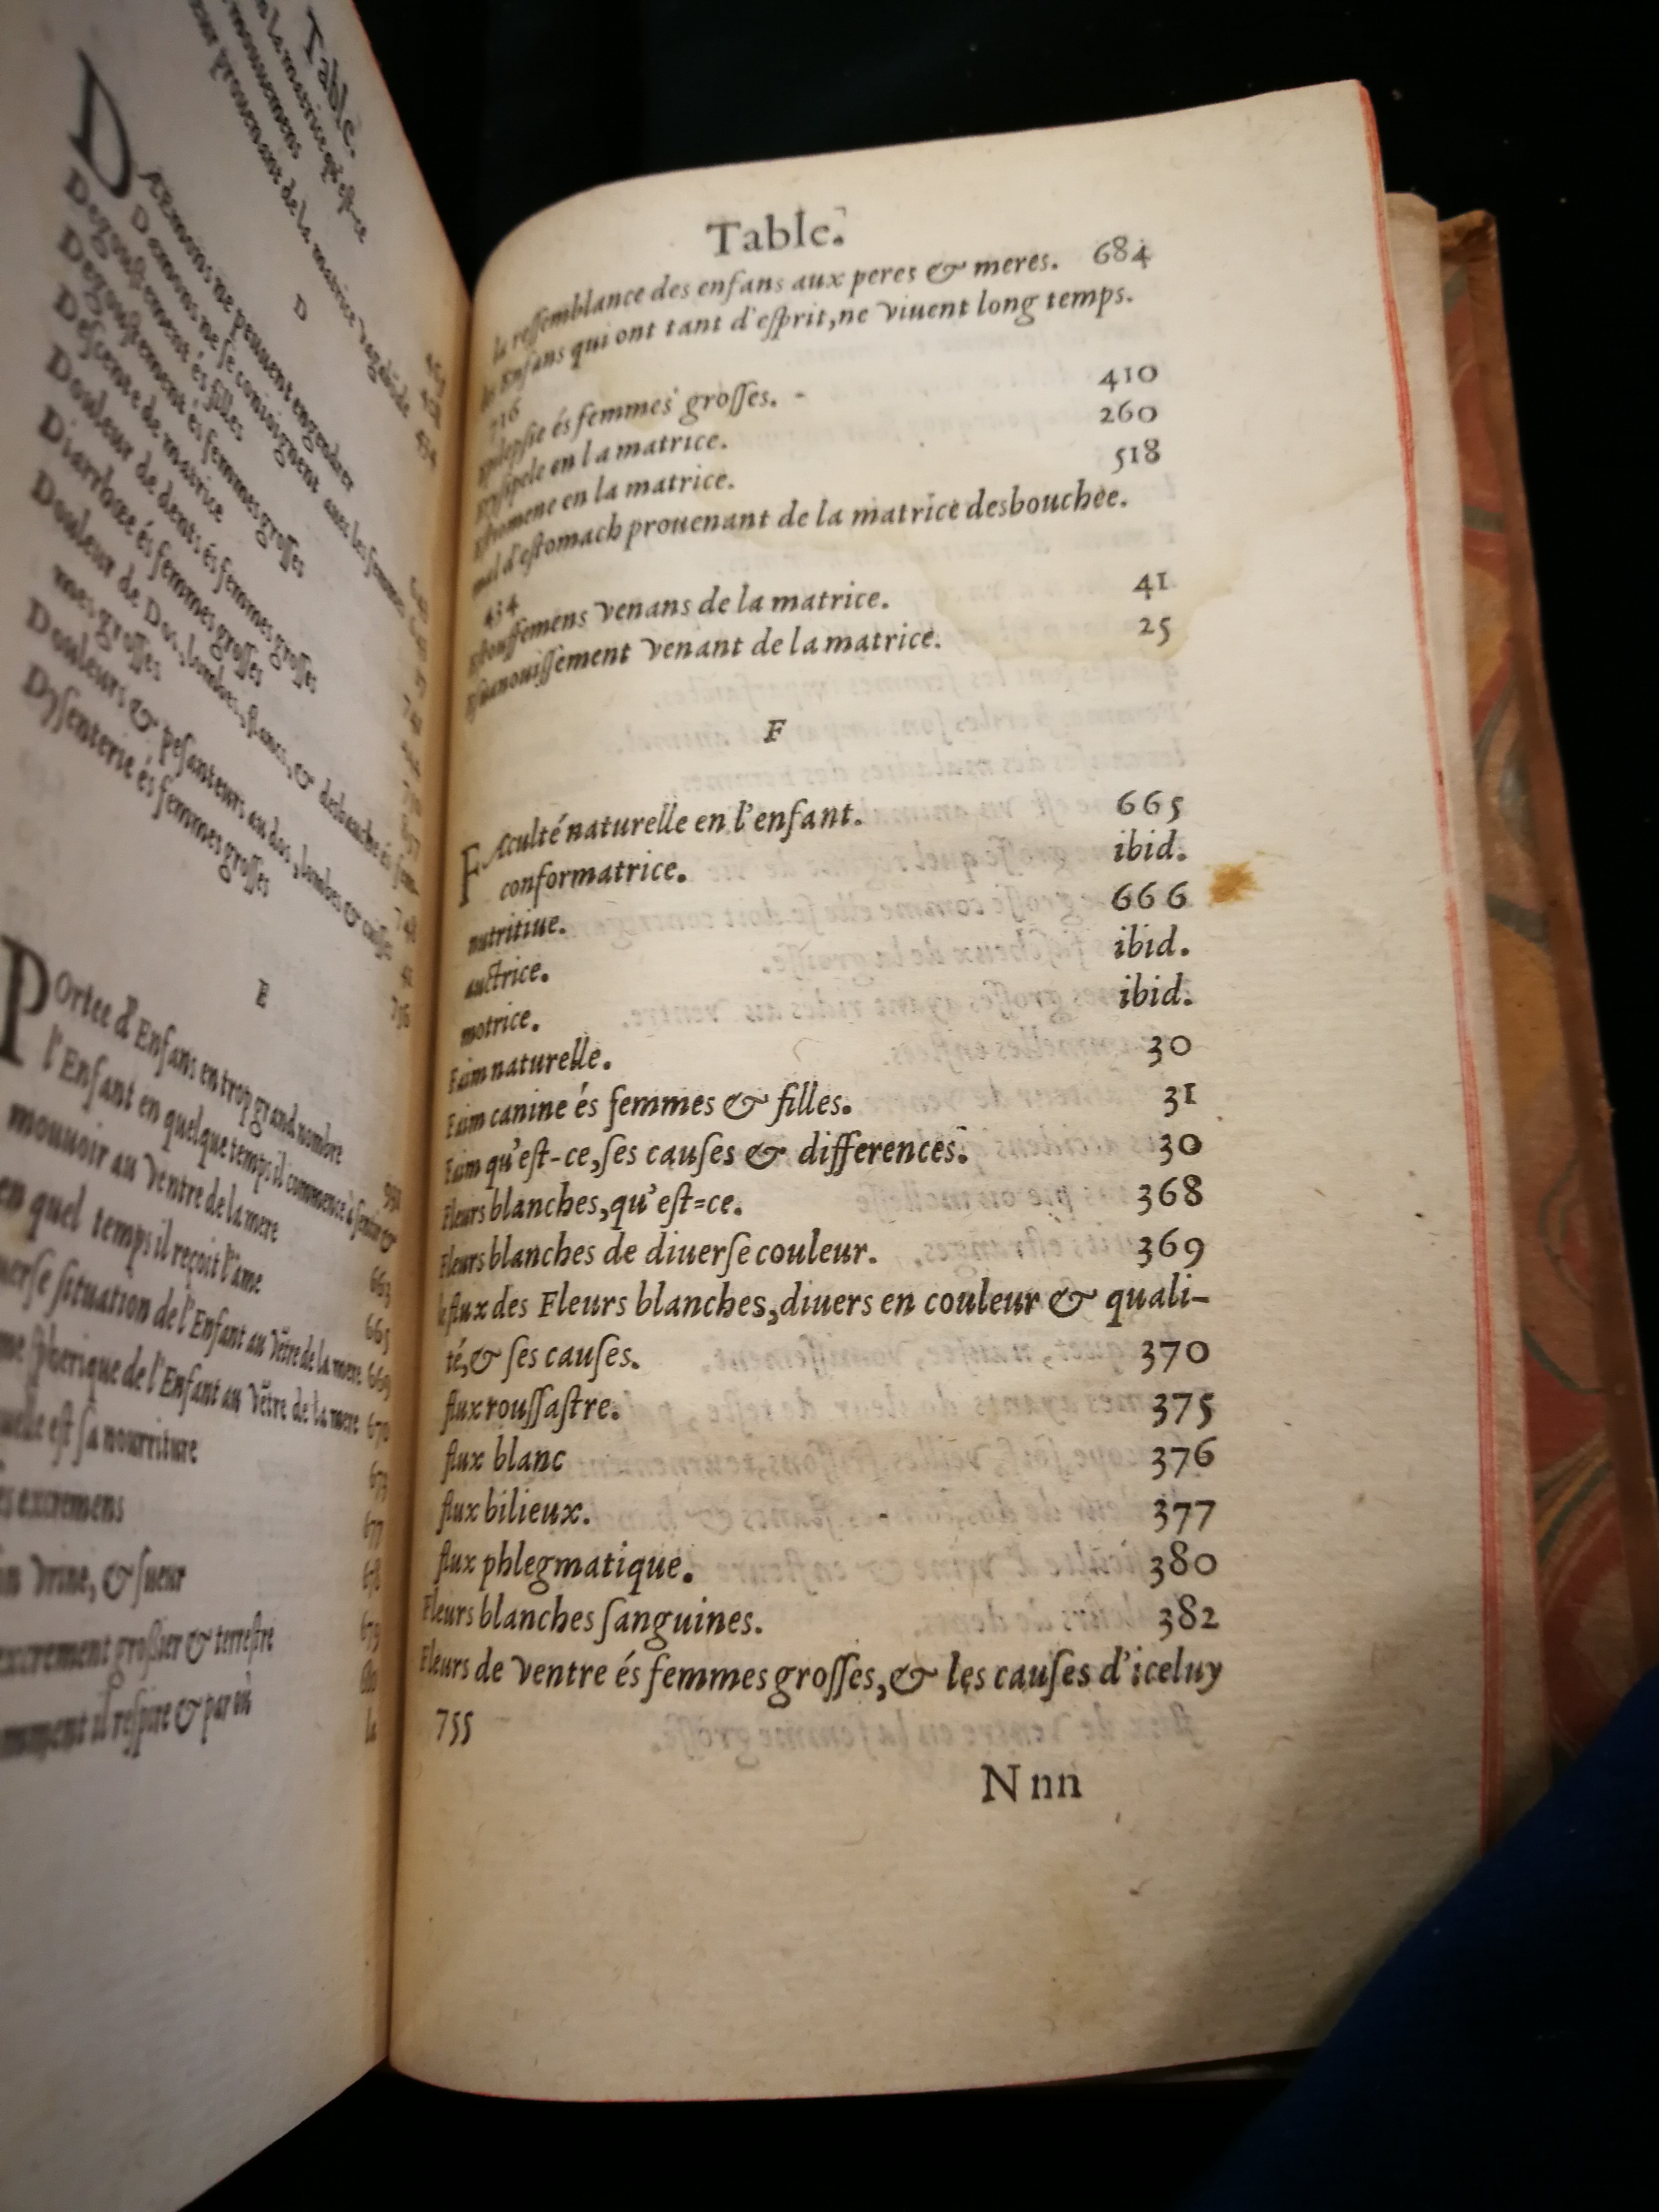 Table.
la matrice qu'est-ce
D
DAEmons ne peuuent engendrer
Degoustement és filles
Degoustement és femmes grosses
Descente de matrice
Douleur de dents és femmes grosses
Diarrhoee és femmes grosses
Douleur de Dos, lombes, flancs, & deshanchée és fem-
mes grosses 741
Douleurs & pesanteurs au dos, lombes & 41
Dysenterie és femmes grosses
E
POrtee d'Enfans en trop grand nombre
l'Enfant en quelque temps il commence à sentir &
mouuoir au ventre de la mere 663
en quel temps il reçoit l'ame 665
situation de l'Enfant au vẽtre de la mere 669
spherique de l'Enfant au vẽtre de la mere 670
est sa nourriture 673
excremens 677
vrine, & sueur 678
excrement grossier & terrestre
il respire & par où
la
Table.
la reſſemblance des enfans aux peres & meres. 684
les Enfans qui ont tant d'eſprit,ne viuent long temps.
716
Epilepſie és femmes groſſes. 410
Eryſipele en la matrice. 260
Eſthiomene en la matrice. 518
mal d'eſtomach prouenant de la matrice desbouchée.
434
Eſtouffemens venans de la matrice. 41
Eſuanouiſſement venant de la matrice. 25
F
FAculté naturelle en l'enfant. 665
conformatrice. ibid.
nutritiue. 666
auctrice. ibid.
motrice. ibid.
Faim naturelle. 30
Faim canine és femmes & filles. 31
Faim qu'eſt-ce,ſes cauſes & differences. 30
Fleurs blanches,qu'eſt=ce. 368
Fleurs blanches de diuerſe couleur. 369
le flux des Fleurs blanches,diuers en couleur & quali-
té,& ſes cauſes. 370
flux rouſſaſtre. 375
flux blanc 376
flux bilieux. 377
flux phlegmatique. 380
Fleurs blanches ſanguines. 382
Fleurs de ventre és femmes groſſes,& les cauſes d'iceluy
755
Nnn